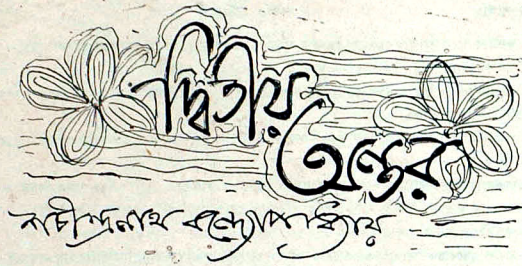 দ্বিতীয়
অন্তর
শচীন্দ্রনাথ বন্দ্যোপাধ্যায়